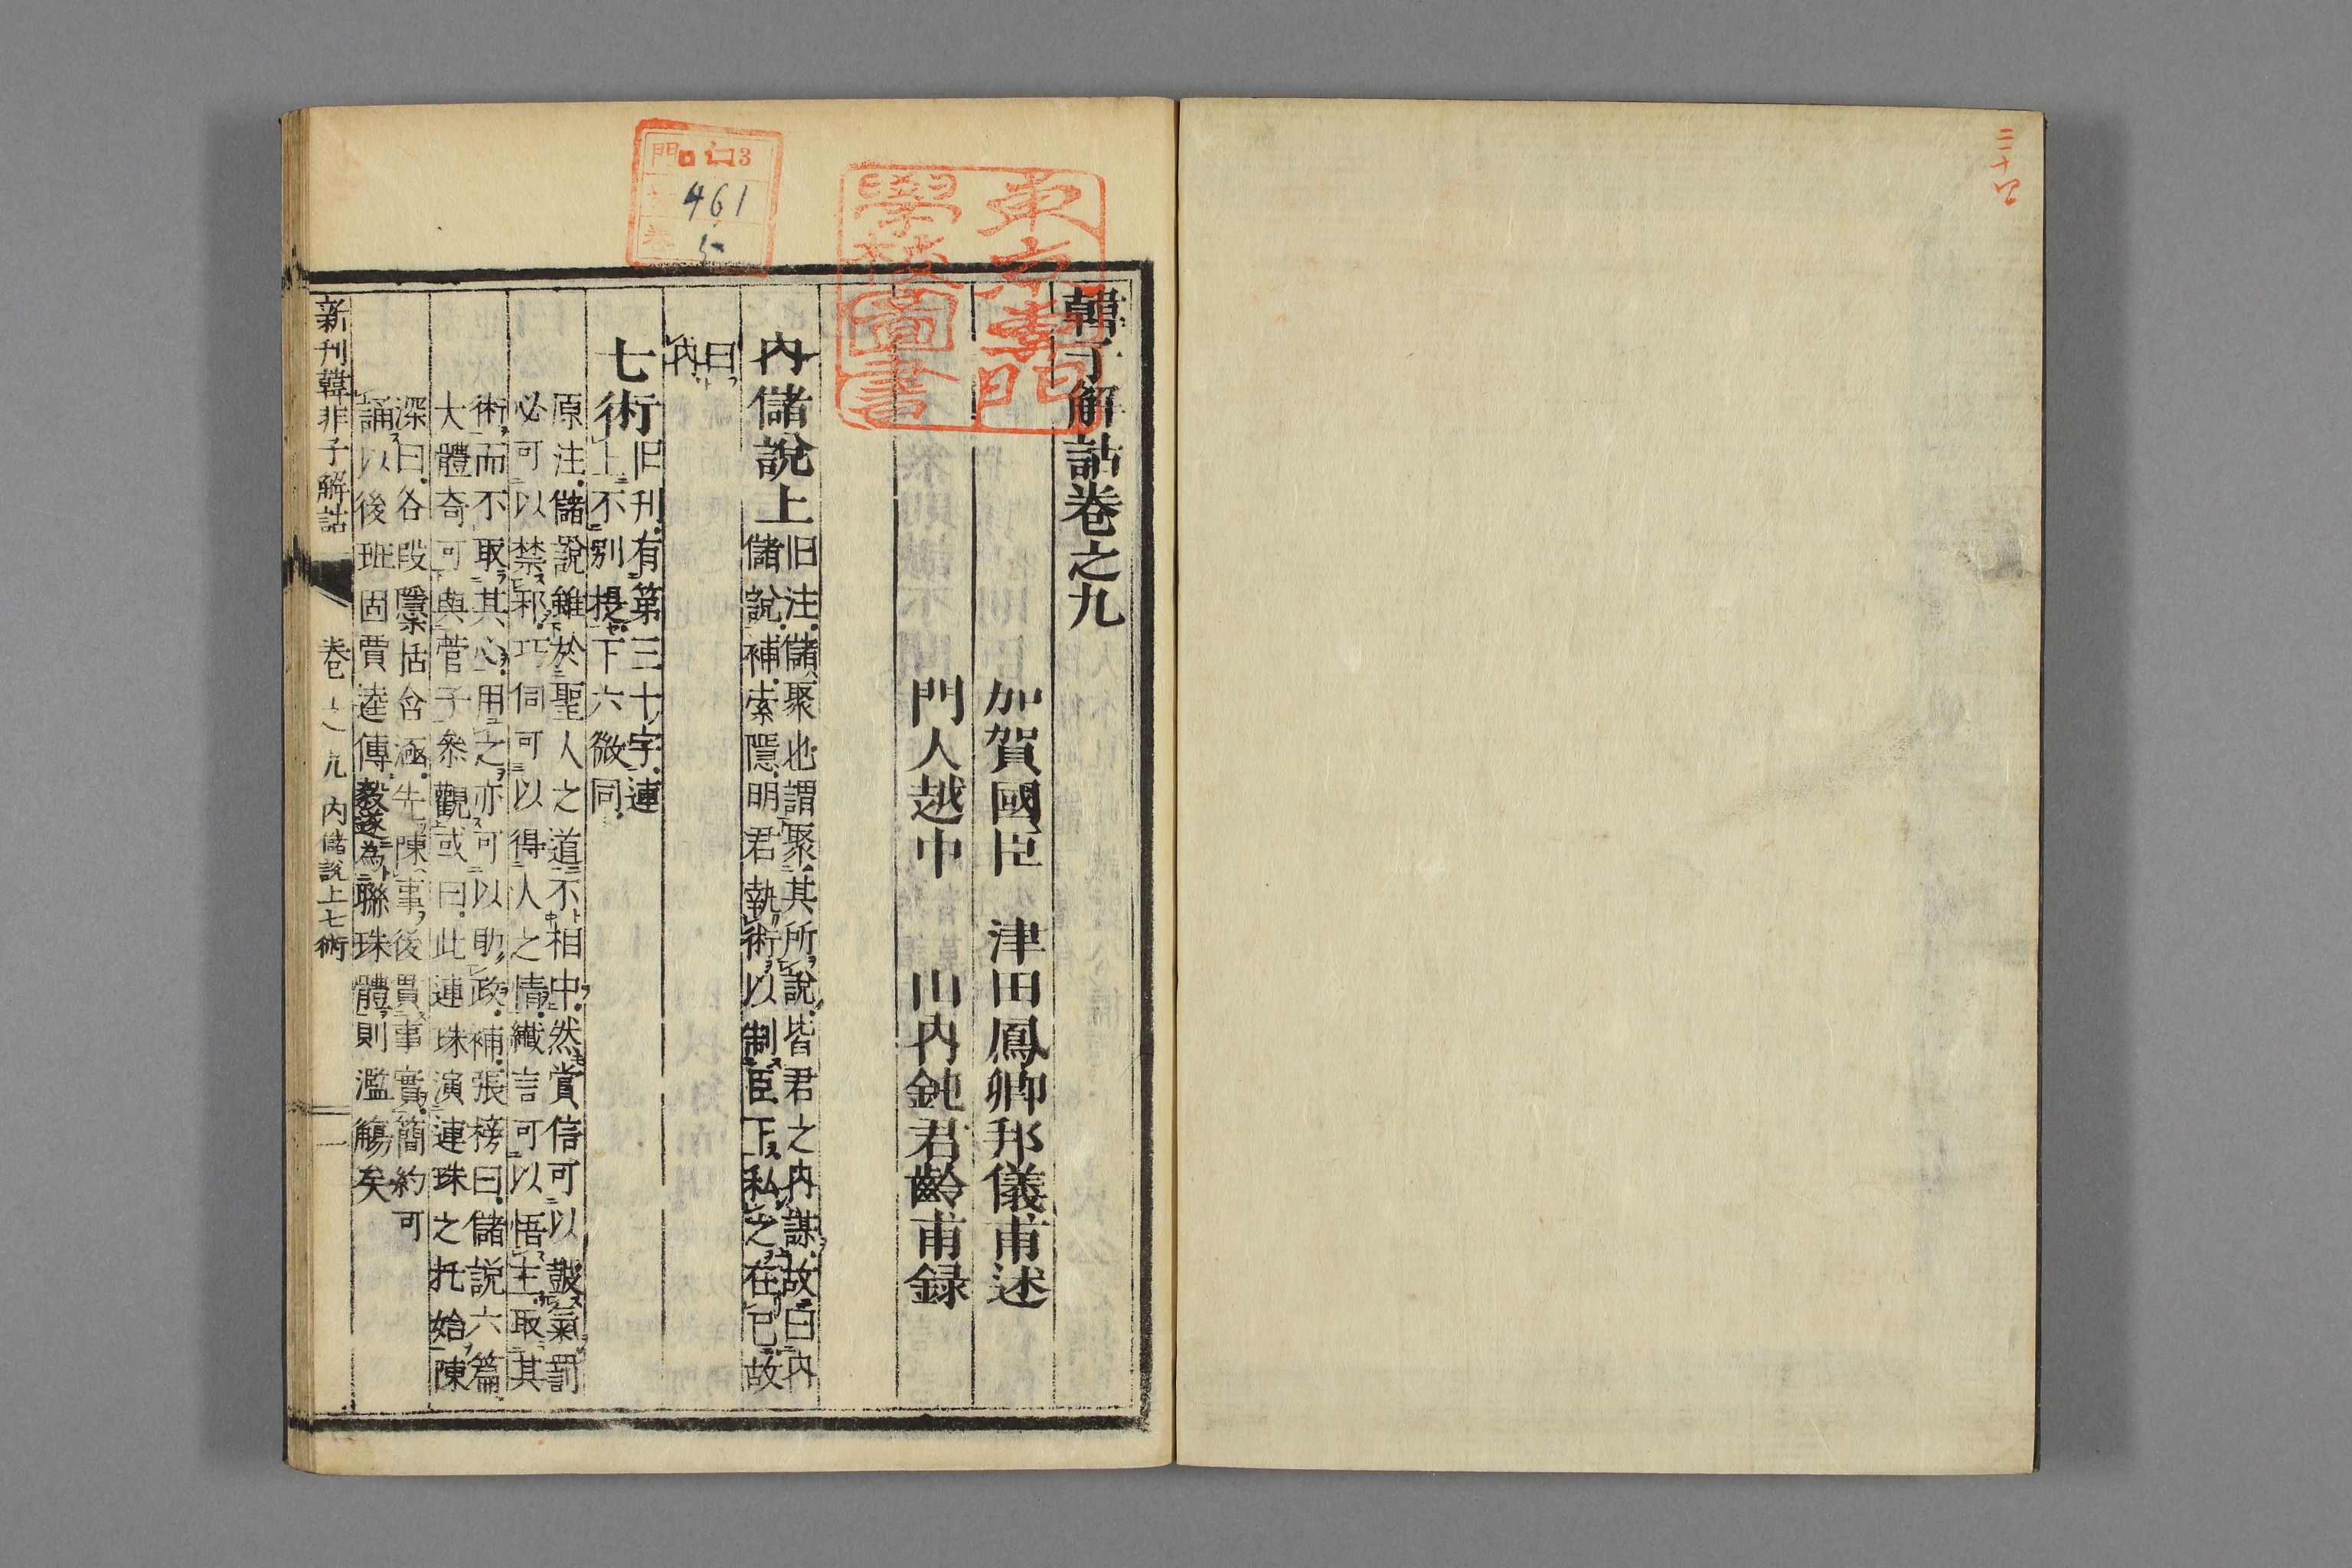 二ノ十四
門 ロ 13
461
卷 5
東京專門
學校圖書
韓子解詁卷之九
加賀國臣 津田鳳卿邦儀甫述
門人越中 山內鈍君齡甫録
內儲說上
旧注儲聚也謂聚其所說皆君之内謀故曰内
儲說補索隱明君執術以制臣下私之在已故
曰
内
七術
旧刊有第三十字連
上不別提下六微同
原注儲說雖於聖人之道不相中然賞信可以鼓氣罰
必可以禁邪巧伺可以得人之情纖言可以悟主取其
術而不取其心用之亦可以助政補張榜曰儲説六篇
大體奇可與管子參觀或曰此連珠演連珠之托始陳
深曰各段隱栝含極先陳事後貫事實簡約可
誦以後班固賈逵傳毅遂為聯珠體則濫觴矣
新刊韓非子解詁 卷之九 内儲説上七術 一